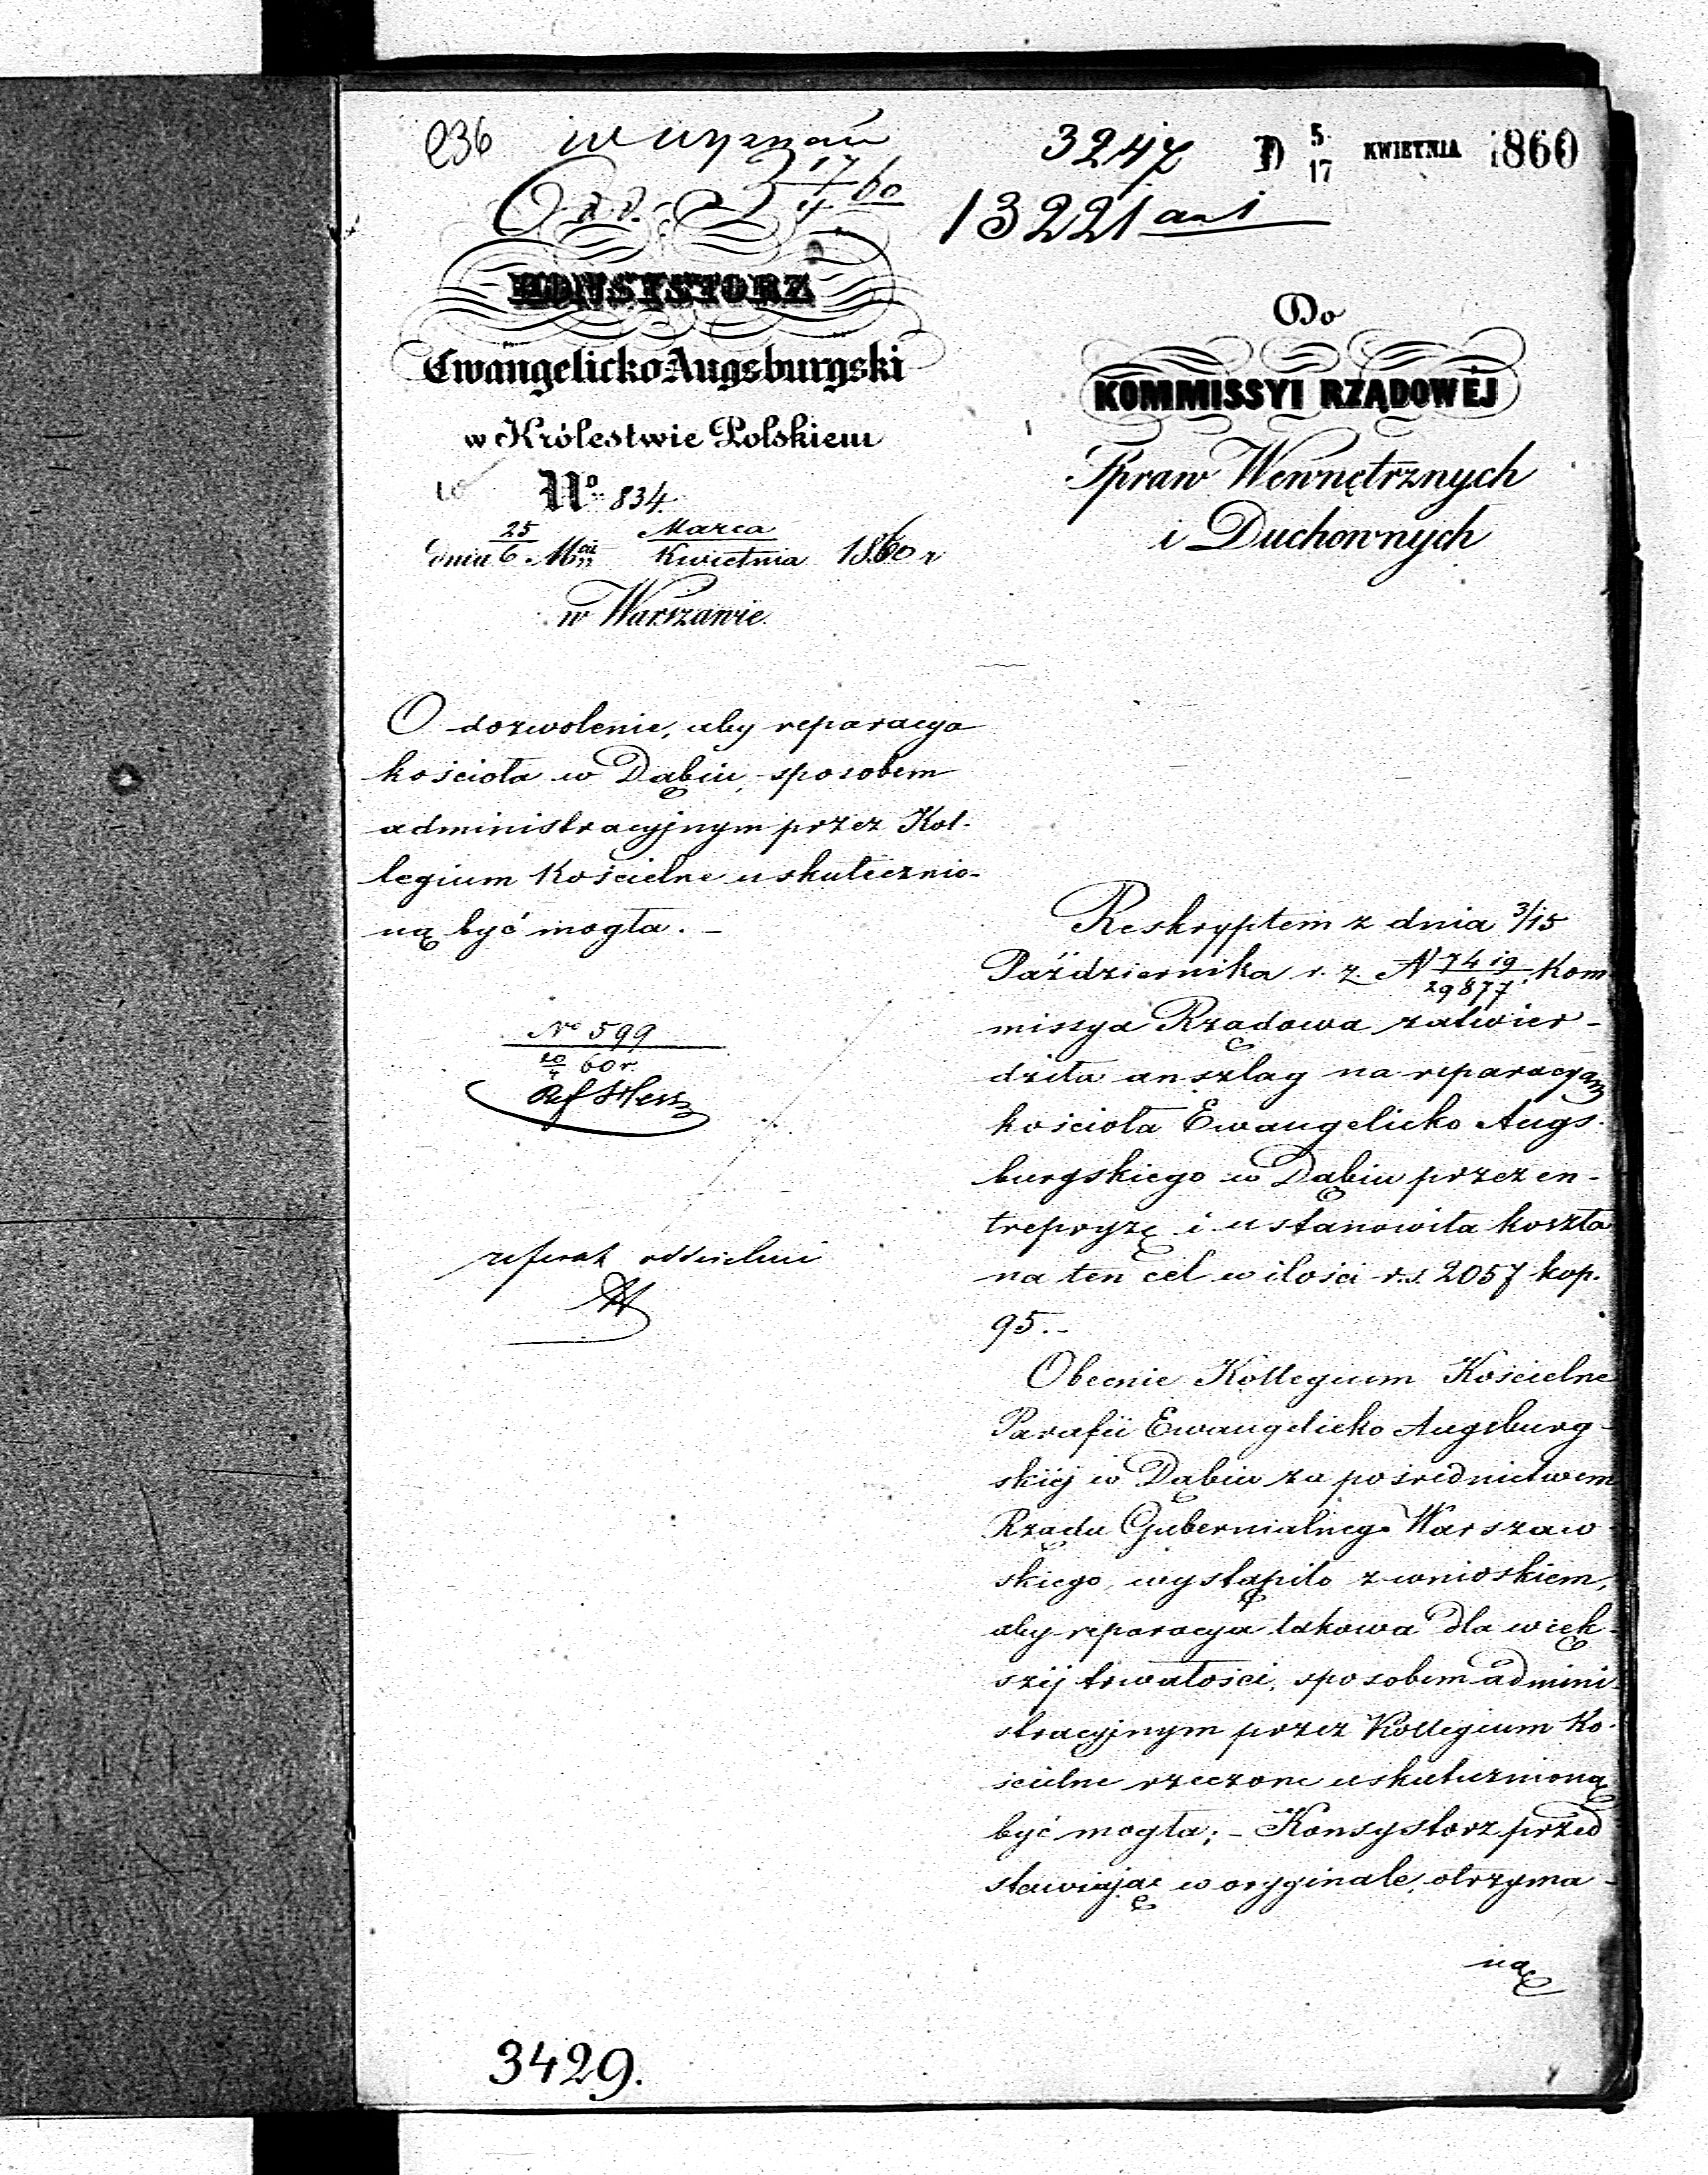 236
w wyznań
3247 D 5/17 KWIETNIA 1860
13221
KONSYSTORZ
Ewangelicko Augsburgski
w Królestwie Polskiem
No 834.
dnia 25/6 Mca Marca/Kwietnia 1860 r
w Warszawie.
O dozwolenie, aby reparacya
kościoła w Dąbiu, sposobem
administracyjnym przez Kol-
legium Kościelne uskutecznio-
ną być mogła. –
No 599
20/4 60 r.
Ref
referat oddzielnie
3429.
Do
KOMMISSYI RZĄDOWÉJ
Spraw Wewnętrznych
i Duchownych
Reskryptem z dnia 3/15
Października r. z. N 7419/29877. Kom
missya Rządowa zatwier-
dziła anszlag na reparacyą
kościoła Ewangelicko Augs-
burgskiego w Dąbiu przez en-
trepryzę i ustanowiła koszta
na ten cel w ilości r.s. 2057 kop.
95.-
Obecnie Kollegium Kościelne
Parafii Ewangelicko Augsburg-
skiéj w Dąbiu za pośrednictwem
Rządu Gubernialnego Warszaw-
skiego, wystąpiło z wnioskiem,
aby reparacya takowa dla więk-
széj trwałości, sposobem admini-
stracyjnym przez Kollegium Ko-
ścielne rzeczone uskutecznioną
być mogła; – Konsystorz przed
stawiając w oryginale, otrzyma-
ną